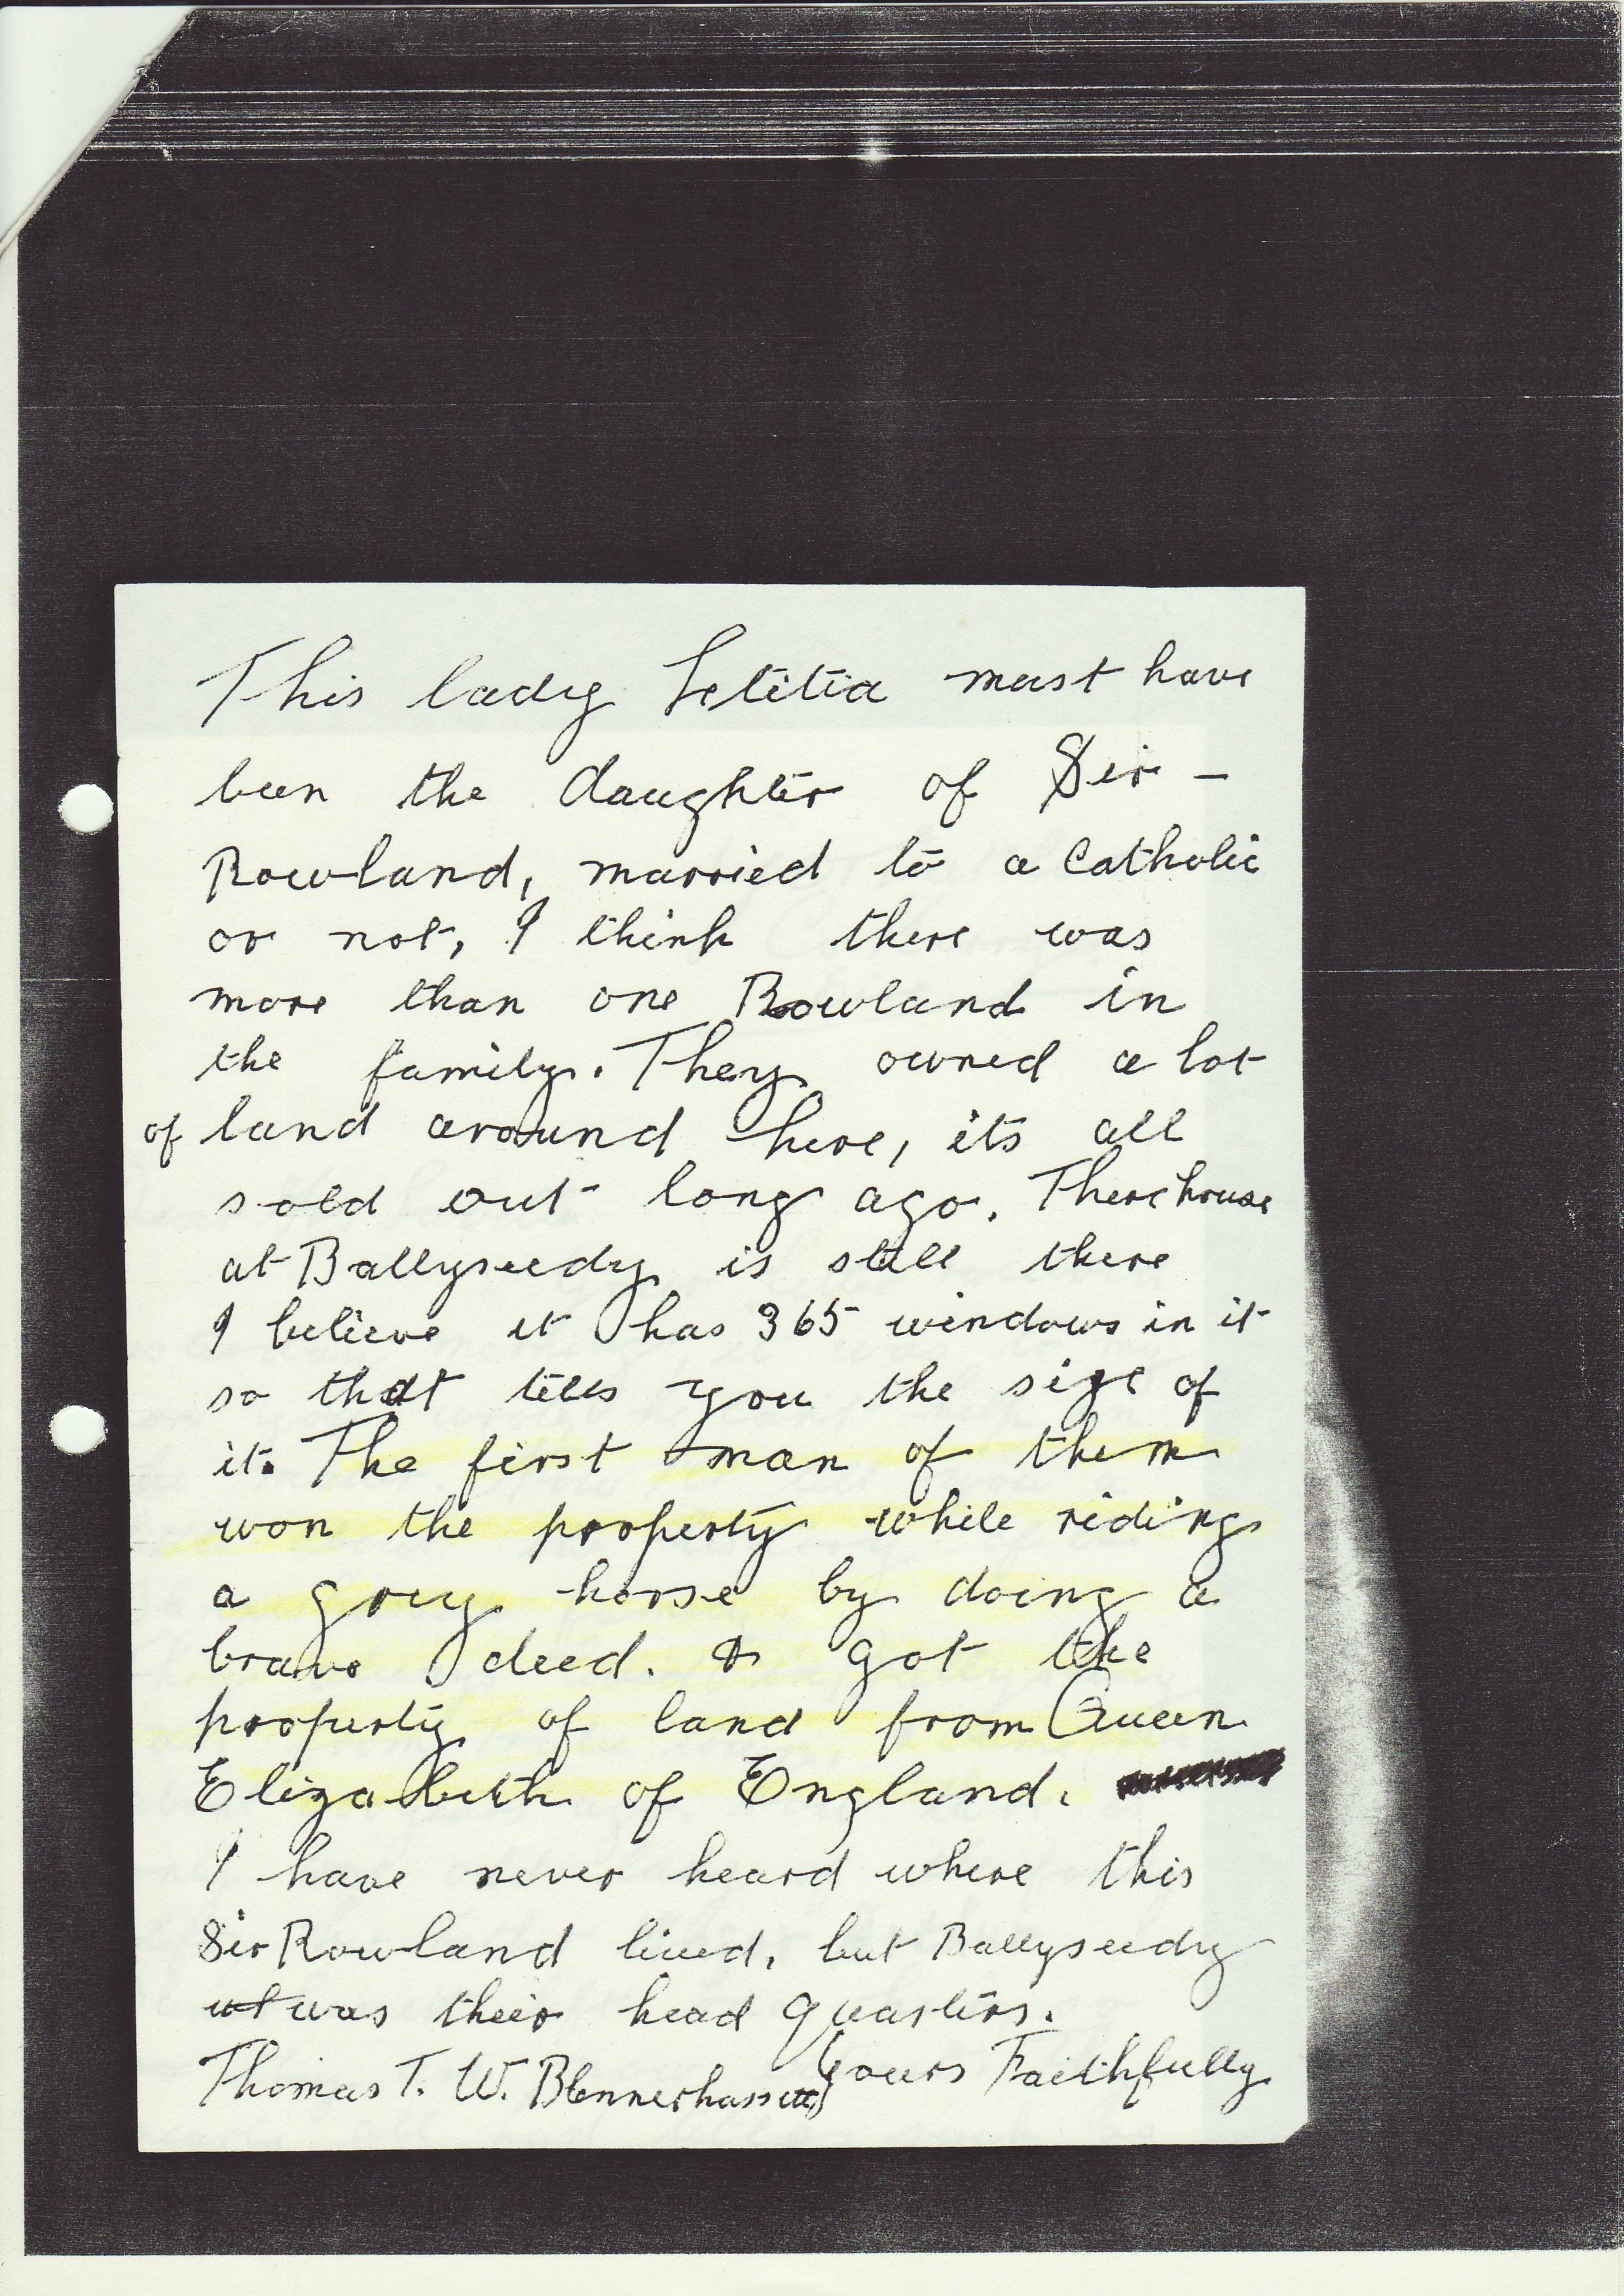 This lady Letitia must have
been the daughter of Sir -
Rowland, married to a Catholic
or not, I think there was
more than one Rowland in
the family. They owned a lot
of land around here, its all
sold out long ago. There house
at Ballyseedy is still there
I believe it has 365 windows in it
so that tells you the size of
it. The first man of them
won the property while riding
a grey horse by doing a
brave deed. & got the
property of land from Queen
Elizabeth of England.
I have never heard where this
Sir Rowland lived, but Ballyseedy
was their head quarters.
Yours Faithfully
Thomas T. W. Blennerhassett